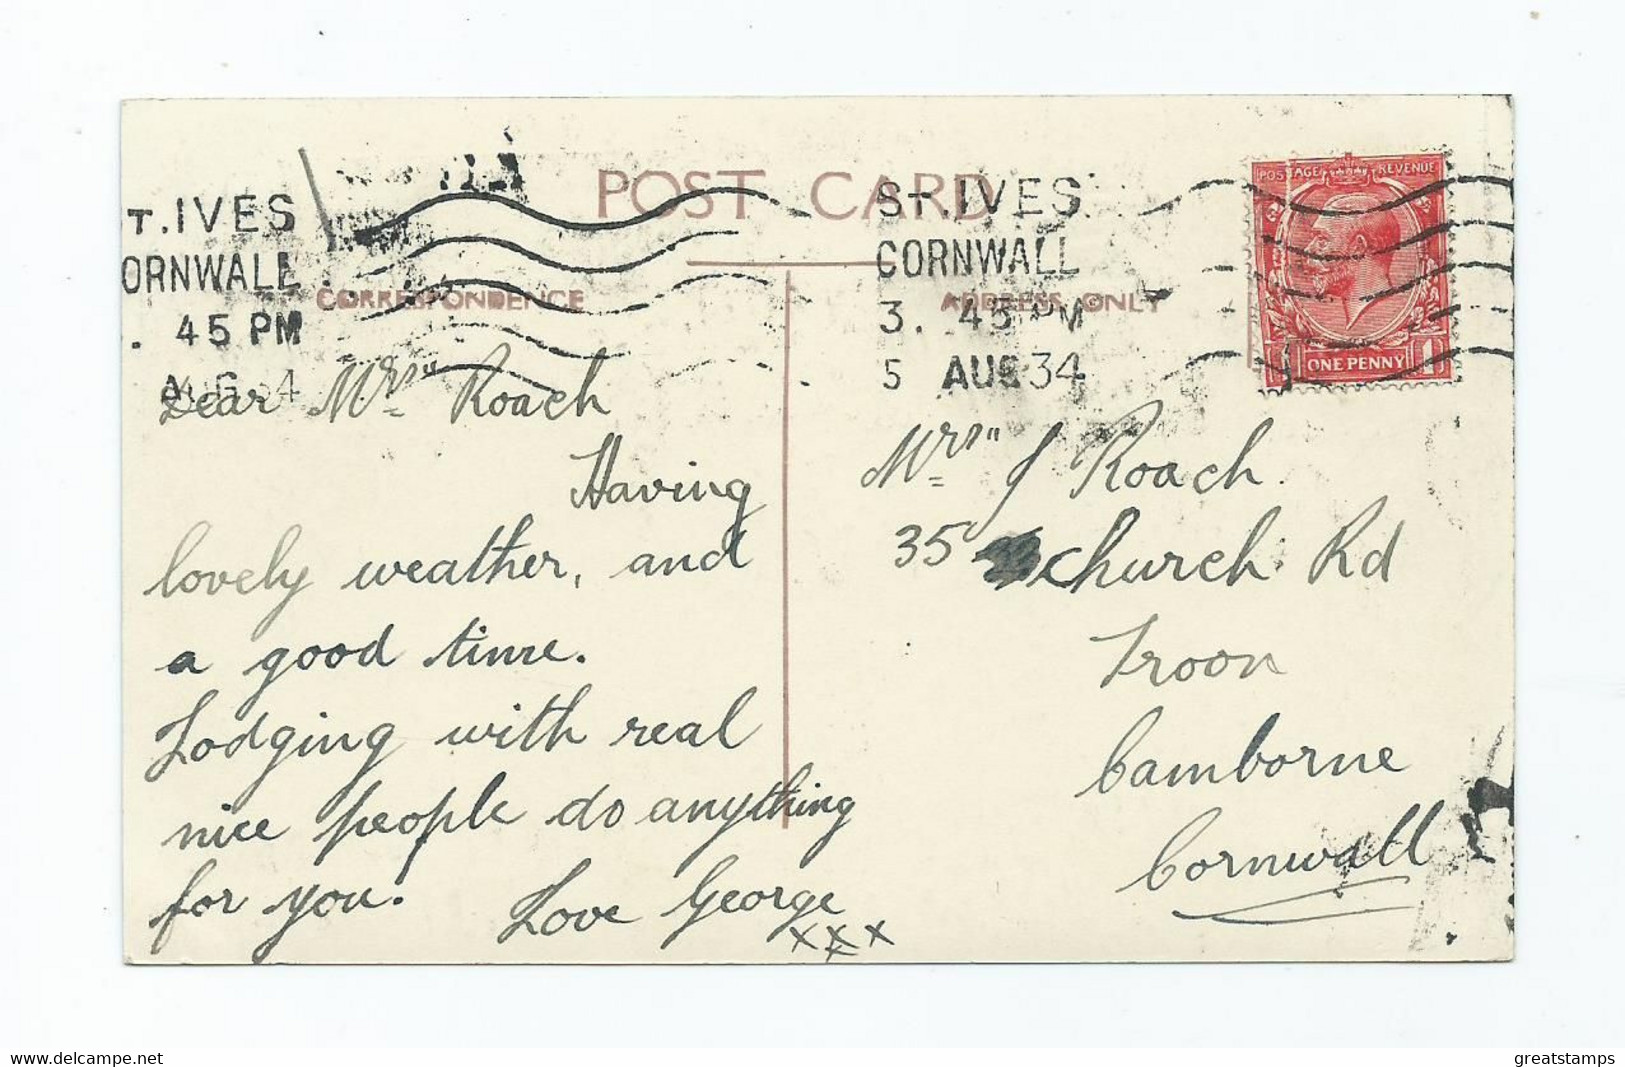 POST CARD
T.IVES
ORNWALL
. 45 PM
ST.IVES
CORNWALL
3. 45 PM
5 AUG 34
POSTAGE REVENUE
ONE PENNY
CORRESPONDENCE
ADDRESS ONLY
Dear Mrs" Roach
Having
lovely weather, and
a good time.
Lodging with real
nice people do anything
for you.
Love George
xxx
Mrs" J Roach.
35 Church Rd
Troon
Camborne
Cornwall
www.delcampe.net
greatstamps